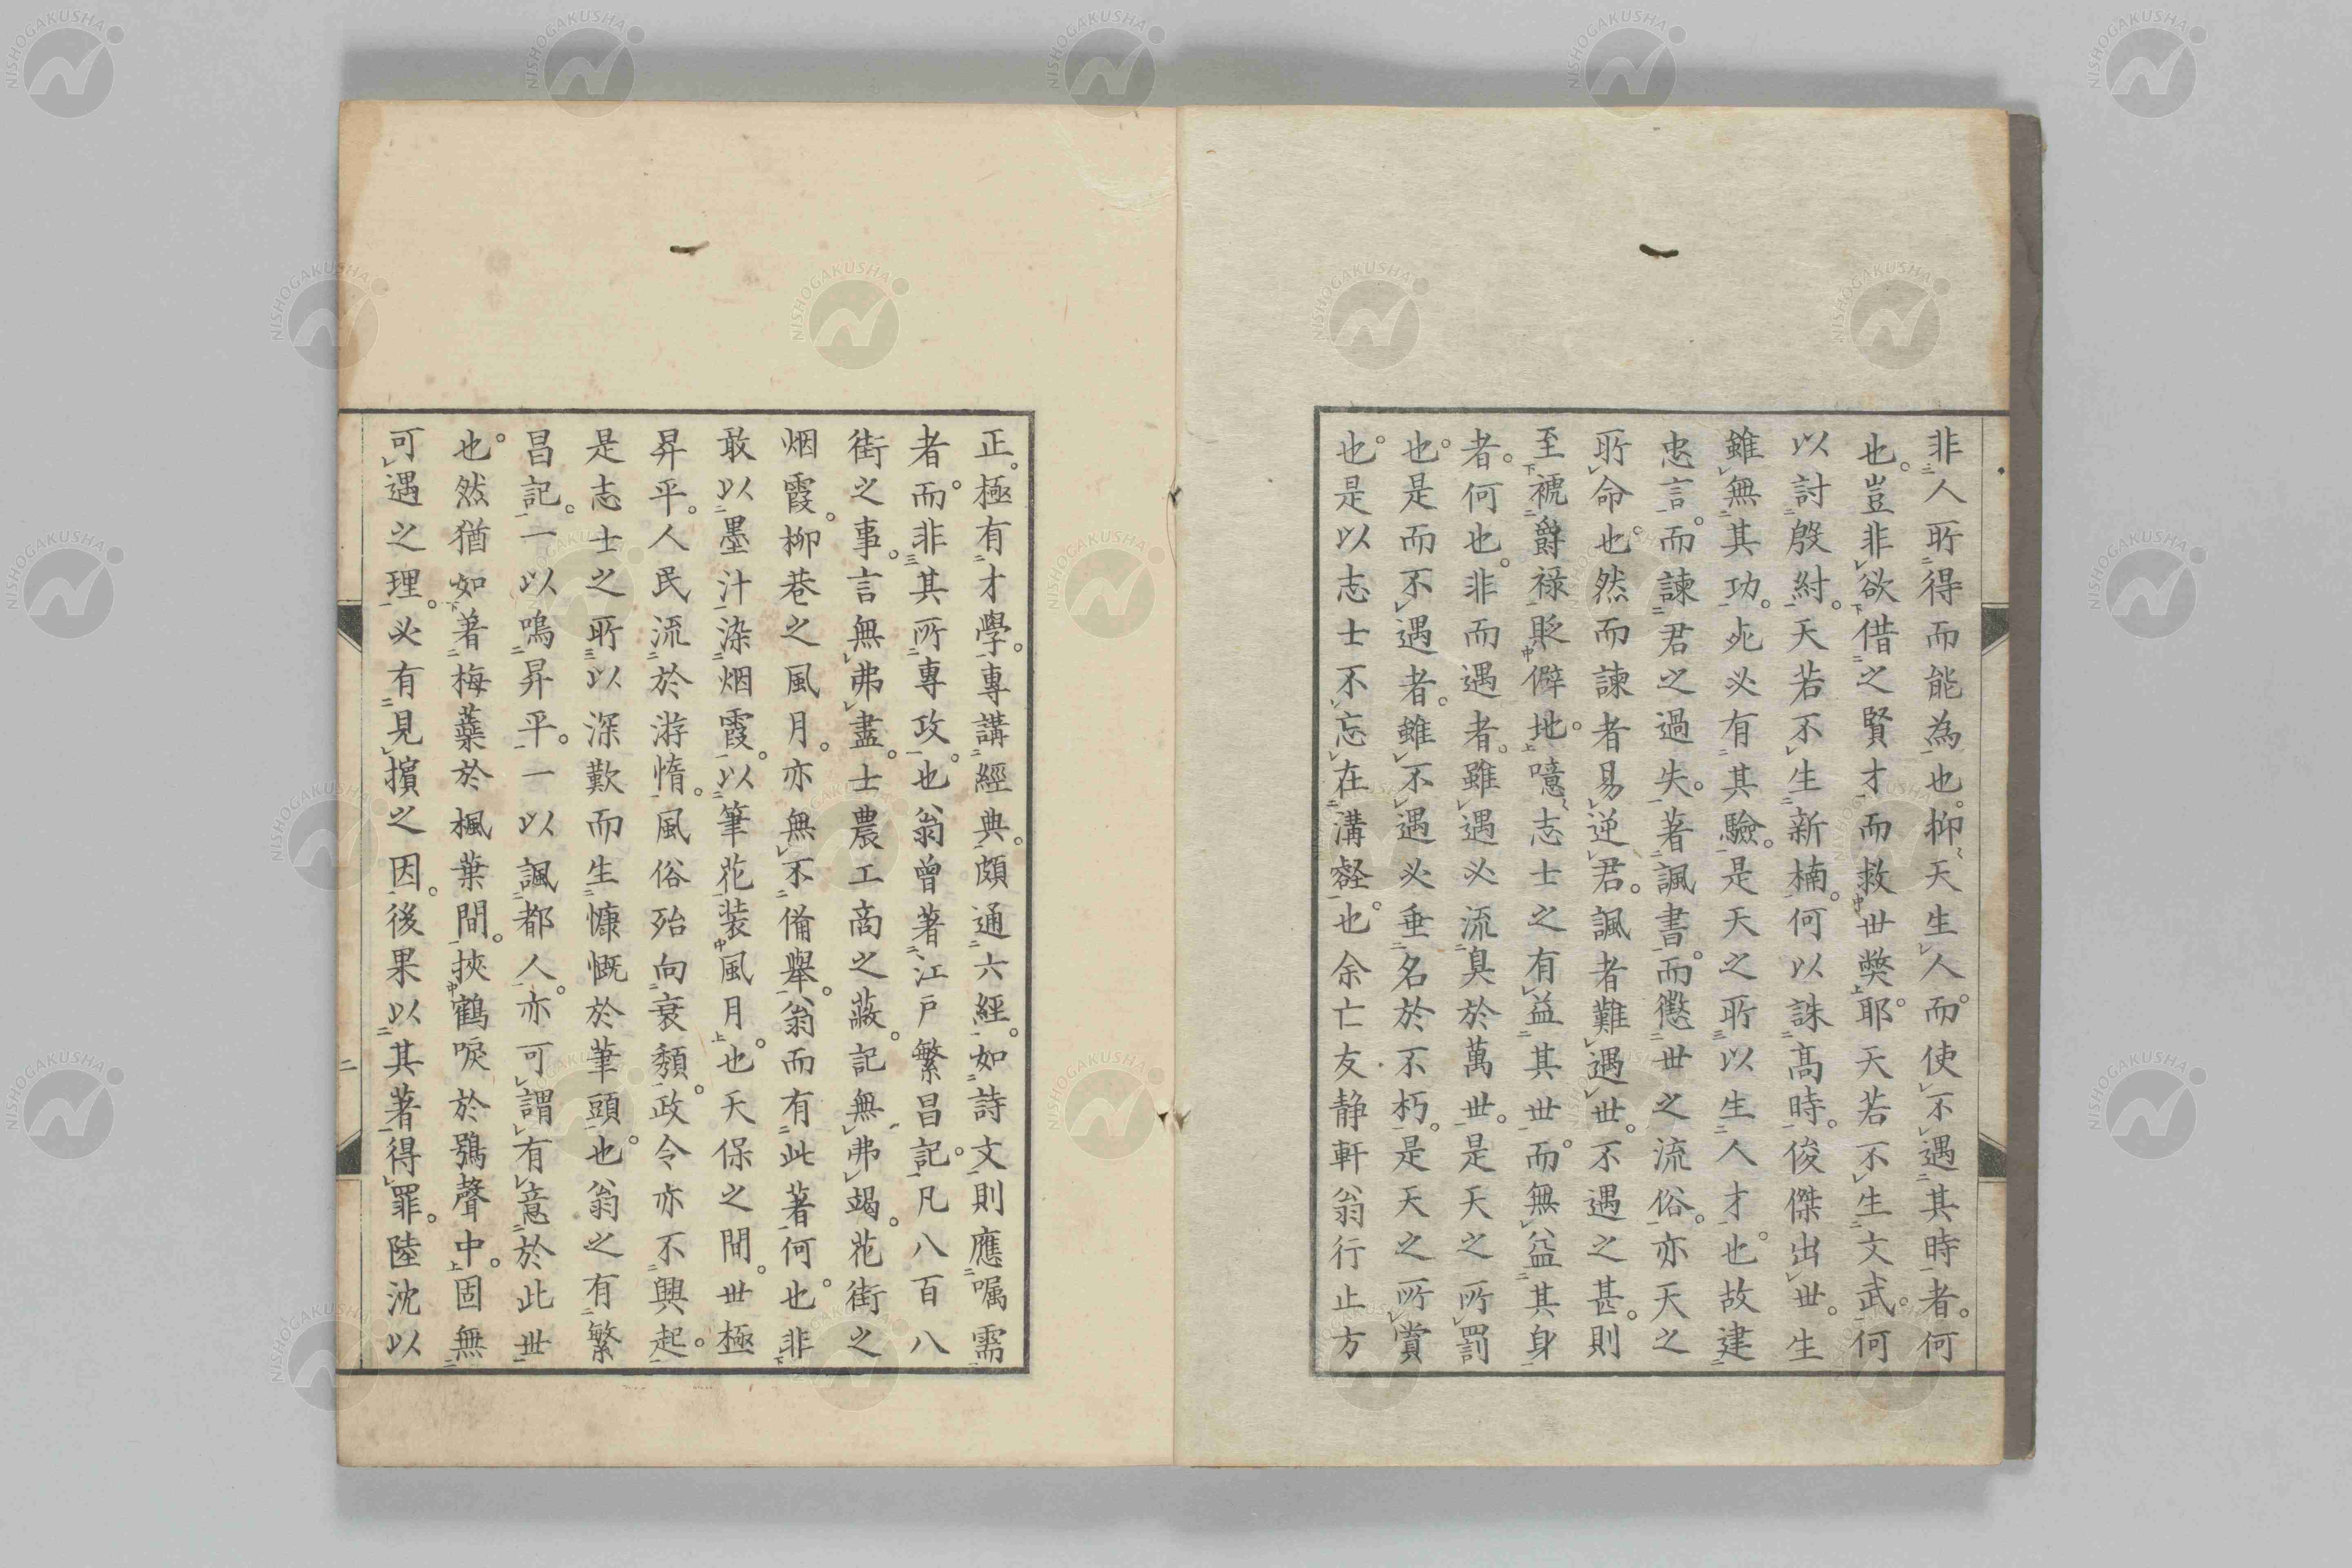 非人所得而能為也。抑天生人。而使不遇其時者。何
也。豈非欲借之賢才而救世弊耶。天若不生文武。何
以討殷紂。天若不生新楠。何以誅高時。俊傑出世。生
雖無其功。死必有其驗。是天之所以生人才也。故建
忠言。而諫君之過失。著諷書。而懲世之流俗。亦天之
所命也。然而諫者易逆君。諷者難遇世。不遇之甚。則
至褫爵祿貶僻地。噫志士之有益其世。而無益其身
者。何也。非而遇者。雖遇必流臭於萬世。是天之所罰
也。是而不遇者。雖不遇必垂名於不朽。是天之所賞
也。是以志士不忘在溝壑也。余亡友静軒翁行止方
正。極有才學。專講經典。頗通六經。如詩文則應囑需
者。而非其所專攻也。翁曾著江戸繁昌記。凡八百八
街之事。言無弗盡。士農工商之蔽。記無弗竭。花街之
烟霞。柳巷之風月。亦無不備舉。翁而有此著何也。非
敢以墨汁染烟霞。以筆花装風月也。天保之間。世極
昇平。人民流於游惰。風俗殆向衰頽。政令亦不興起。
是志士之所以深歎而生慷慨於筆頭也。翁之有繁
昌記。一以鳴昇平。一以諷都人。亦可謂有意於此世
也。然猶如著梅蘂於楓葉間。挾鶴唳於鴞聲中。固無
可遇之理。必有見擯之因。後果以其著得罪。陸沈以
二
NISHOGAKUSHA